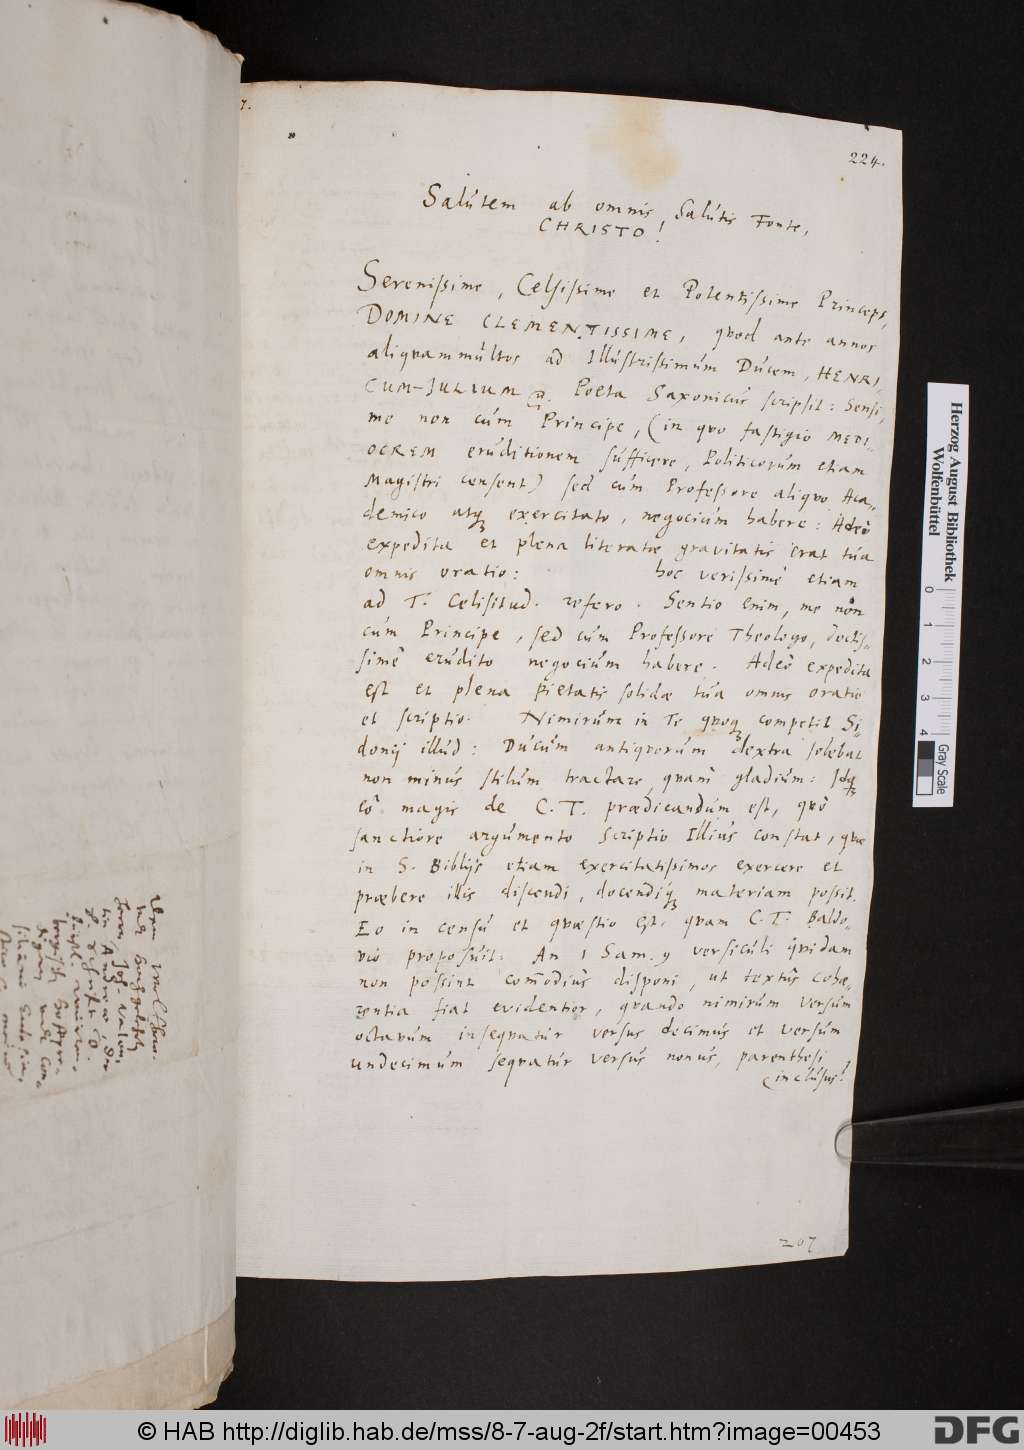 224.
Salútem ab omnis Salútis Fonte,
CHRISTO!
Serenissime, Celsissime et Potentissime Princeps,
DOMINE CLEMENTISSIME, quod ante annos
aliquammúltos ad Illústrissimúm Dúcem, HENRI-
CUM-JULIUM Poëta Saxonicús scripsit: Sensi,
me non cúm Principe, (in quo fastigio MEDI-
OCREM erúditionem súfficere, Politicorúm etiam
Magistri censent) sed cúm Professore aliquo Aca-
demico atq exercitato, negociúm habere: Adeò
expedita et plena literatae gravitatis erat túa
omnis oratio: hoc verissimè etiam
ad T. Celsitud. refero. Sentio enim, me non
cúm Principe, sed cúm Professore Theologo, doctis-
simè erúdito negociúm habere. Adeò expedita
est et plena pietatis solidae túa omnis oratio
et scriptio. Nimirúm in Te quoq competit Si-
donij illúd: Dúcúm antiquorúm dextra solebat
non minús stilúm tractare, quàm gladiúm: Idq
eò magis de C. T. praedicandúm est, quò
sanctiore argúmento scriptio Illiús constat, quae
in S. Biblijs etiam exercitatissimos exercere et
praebere illis discendi, docendiq materiam possit.
Eo in censú et quaestio est, quam C. T. Baldo-
vio proposúit: An 1 Sam. 9 versicúli quidam
non possint com̄odiús disponi, ut textús cohae-
rentia fiat evidentior, quando nimirúm versúm
octavum insequatúr versus decimus et versúm
undecimum sequatúr versús nonus, parenthesi
inclúsus?
207
Herzog August Bibliothek
Wolfenbüttel
0 1 2 3 4
Gray Scale
© HAB http://diglib.hab.de/mss/8-7-aug-2f/start.htm?image=00453
DFG